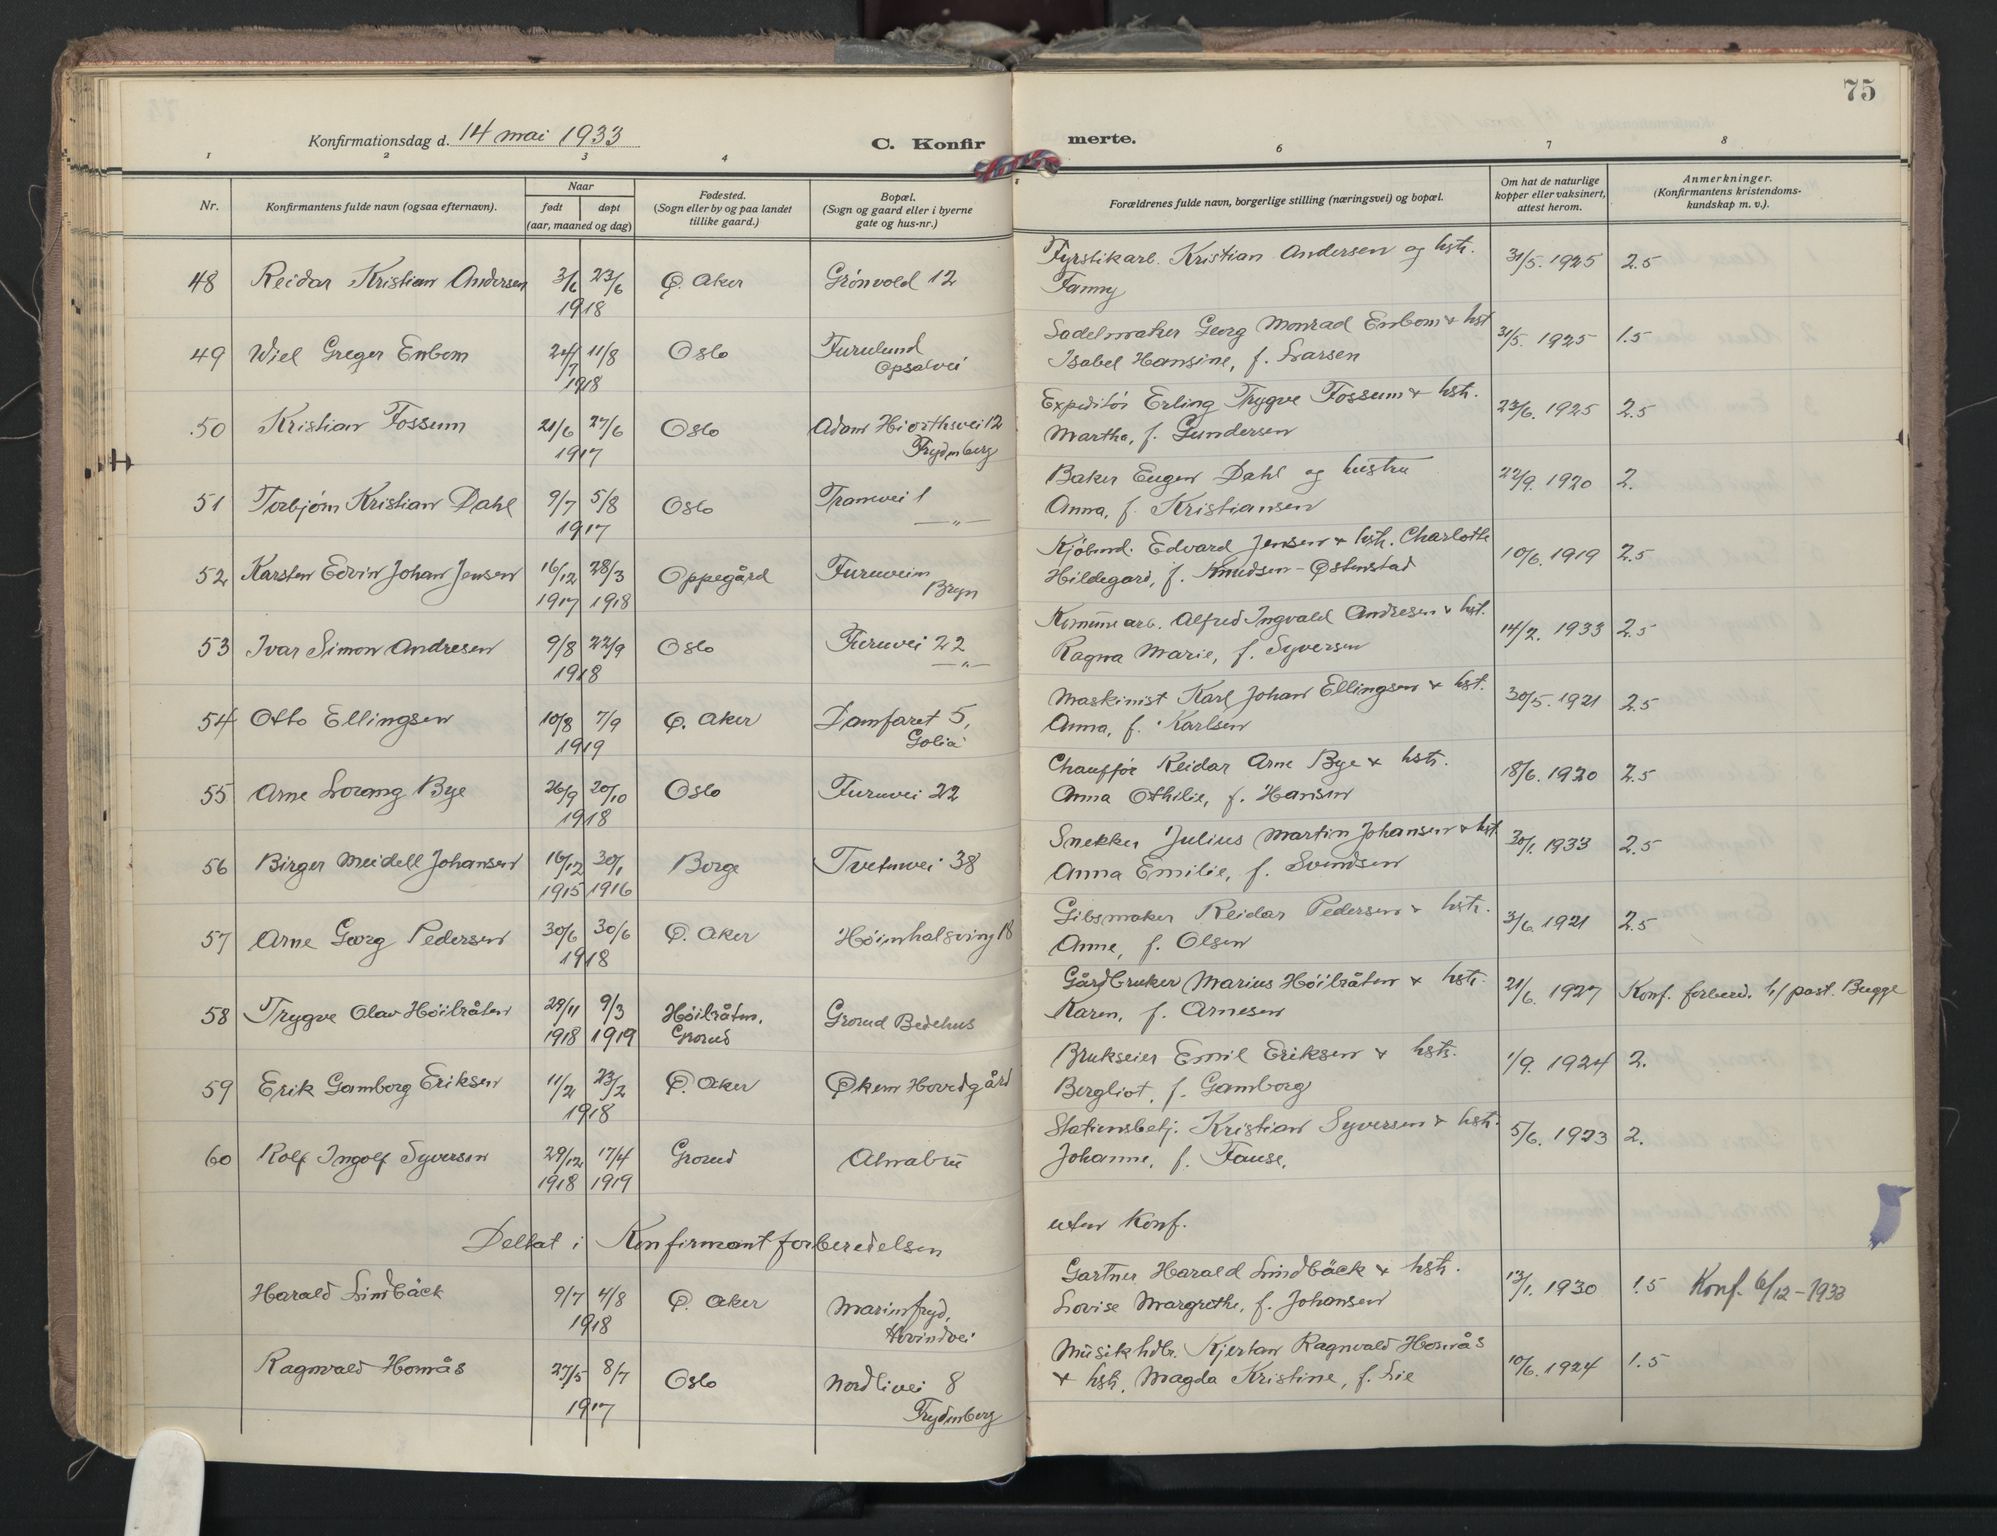 75
Konfirmationsdag d. 14 mai 1933 C. Konfir merte.
1 2 3 4 5 6 7 8
Nr. Konfirmantens fulde navn (ogsaa efternavn). Naar født døpt (aar, maaned og dag) Fødested. (Sogn eller by og paa landet tillike gaard.) Bopæl. (Sogn og gaard eller i byerne gate og hus-nr.) Forældrenes fulde navn, borgerlige stilling (næringsvei) og bopæl. Om hat de naturlige kopper eller vaksinert, attest herom. Anmerkninger. (Konfirmantens kristendoms-kundskap m. v.).
48 Reidar Kristian Andersen 3/6 23/6 Ø. Aker Grönvold 12 Fyrstikarb. Kristian Andersen og hstr. 31/5. 1925 2.5
1918 Fanny
49 Wiel Greger Enbom 24/7 11/8 Oslo Furulund Sadelmaker Georg Monrad Enbom + hst 31/5. 1925 1.5
1918 Opsalvei Isabel Hansine, f. Larsen
50 Kristian Fossum 21/6 27/6 Oslo Adam Hiorthsvei 12 Expeditör Erling Trygve Fossum + hstr. 23/6. 1925 2.5
1917 Frydenberg Martha, f. Gundersen
51 Torbjörn Kristian Dahl 9/7 5/8 Oslo Tramvei 1 Baker Eugen Dahl og hustru 22/9. 1920 2.
1917 —"— Anna, f. Kristiansen
52 Karsten Edvin Johan Jensen 16/12 28/3 Oppegård Furuveien Kjöbmd. Edvard Jensen + hstr. Charlotte 10/6. 1919 2.5
1917 1918 Bryn Hildegard, f. Knudsen-Östenstad
53 Ivar Simon Andresen 9/8 22/9 Oslo Furuvei 22 Kommunearb. Alfred Ingvald Andresen + hst. 14/2. 1933 2.5
1918 —"— Ragna Marie, f. Syversen
54 Otto Ellingsen 10/8 7/9 Ø. Aker Damfaret 5, Maskinist Karl Johan Ellingsen + hst. 30/5. 1921 2.5
1919 Golia Anna, f. Karlsen
55 Arne Lorang Bye 26/9 20/10 Oslo Furuvei 22 Chauffør Reidar Arne Bye + hstr. 18/6. 1920 2.5
1918 Anna Othilie, f. Hansen
56 Birger Meidell Johansen 16/12 30/1 Borge Tvetenvei 38 Snekker Julius Martin Johansen + hst 30/1. 1933 2.5
1915 1916 Anna Emilie, f. Svendsen
57 Arne Georg Pedersen 30/6 30/6 Ø. Aker Höienhalsving 18 Gibsmaker Reidar Pedersen + hstr. 3/6. 1921 2.5
1918 Anne, f. Olsen
58 Trygve Olav Höibråten 29/11 9/3 Höibråten, Grorud Bedehus Gårdbruker Marius Höibråten + hstr. 21/6. 1927 Konf. forbered. h/ past. Bugge
1918 1919 Grorud Karen, f. Arnesen
59 Erik Gamborg Eriksen 11/2 23/2 Ø. Aker Økern Hovedgård Brukseier Emil Eriksen + hstr. 1/9. 1924 2.
1918 Bergliot, f. Gamborg
60 Rolf Ingolf Syversen 29/12 17/4 Grorud Alnabru Stationsbetj. Kristian Syversen + hstr. 5/6. 1923 2.
1918 1919 Johanne, f. Fause.
Deltat i Konfirmantforberedelsen uten Konf.
Harald Lindbäck 9/7 4/8 Ø. Aker Marienfryd, Gartner Harald Lindbäck + hstr. 13/1. 1930 1.5 Konf. 6/12-1933
1918 Hovindvei Lovise Margrethe, f. Johansen
Ragnvald Hornås 27/5 8/7 Oslo Nordlivei 8 Musikhdlr. Kjertan Ragnvald Hornås 10/6. 1924 1.5
1917 Frydenberg + hstr, Magda Kristine, f. Lie